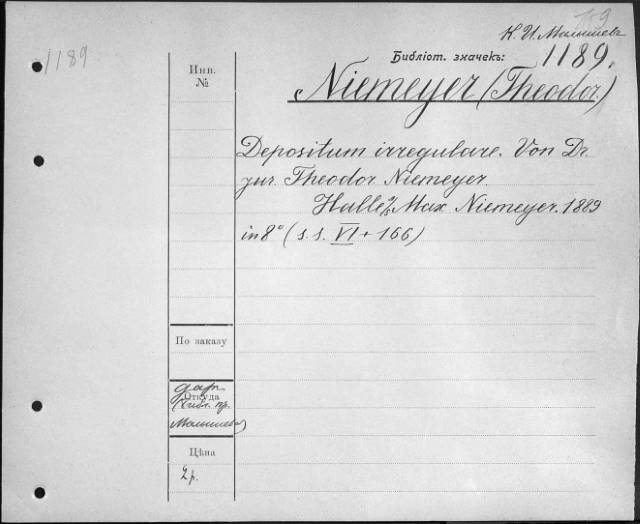 1189
К. И. Малышевъ
Библіот. значекъ: 1189.
Инв.
№
Niemeyer (Theodor.)
Depositum irregulare. Von Dr.
jur. Theodor Niemeyer.
Halle a/S Max Niemeyer. 1889
in 8° (s. s. VI + 166)
По заказу
Откуда
дар.
Малышева)
Цѣна
2 р.